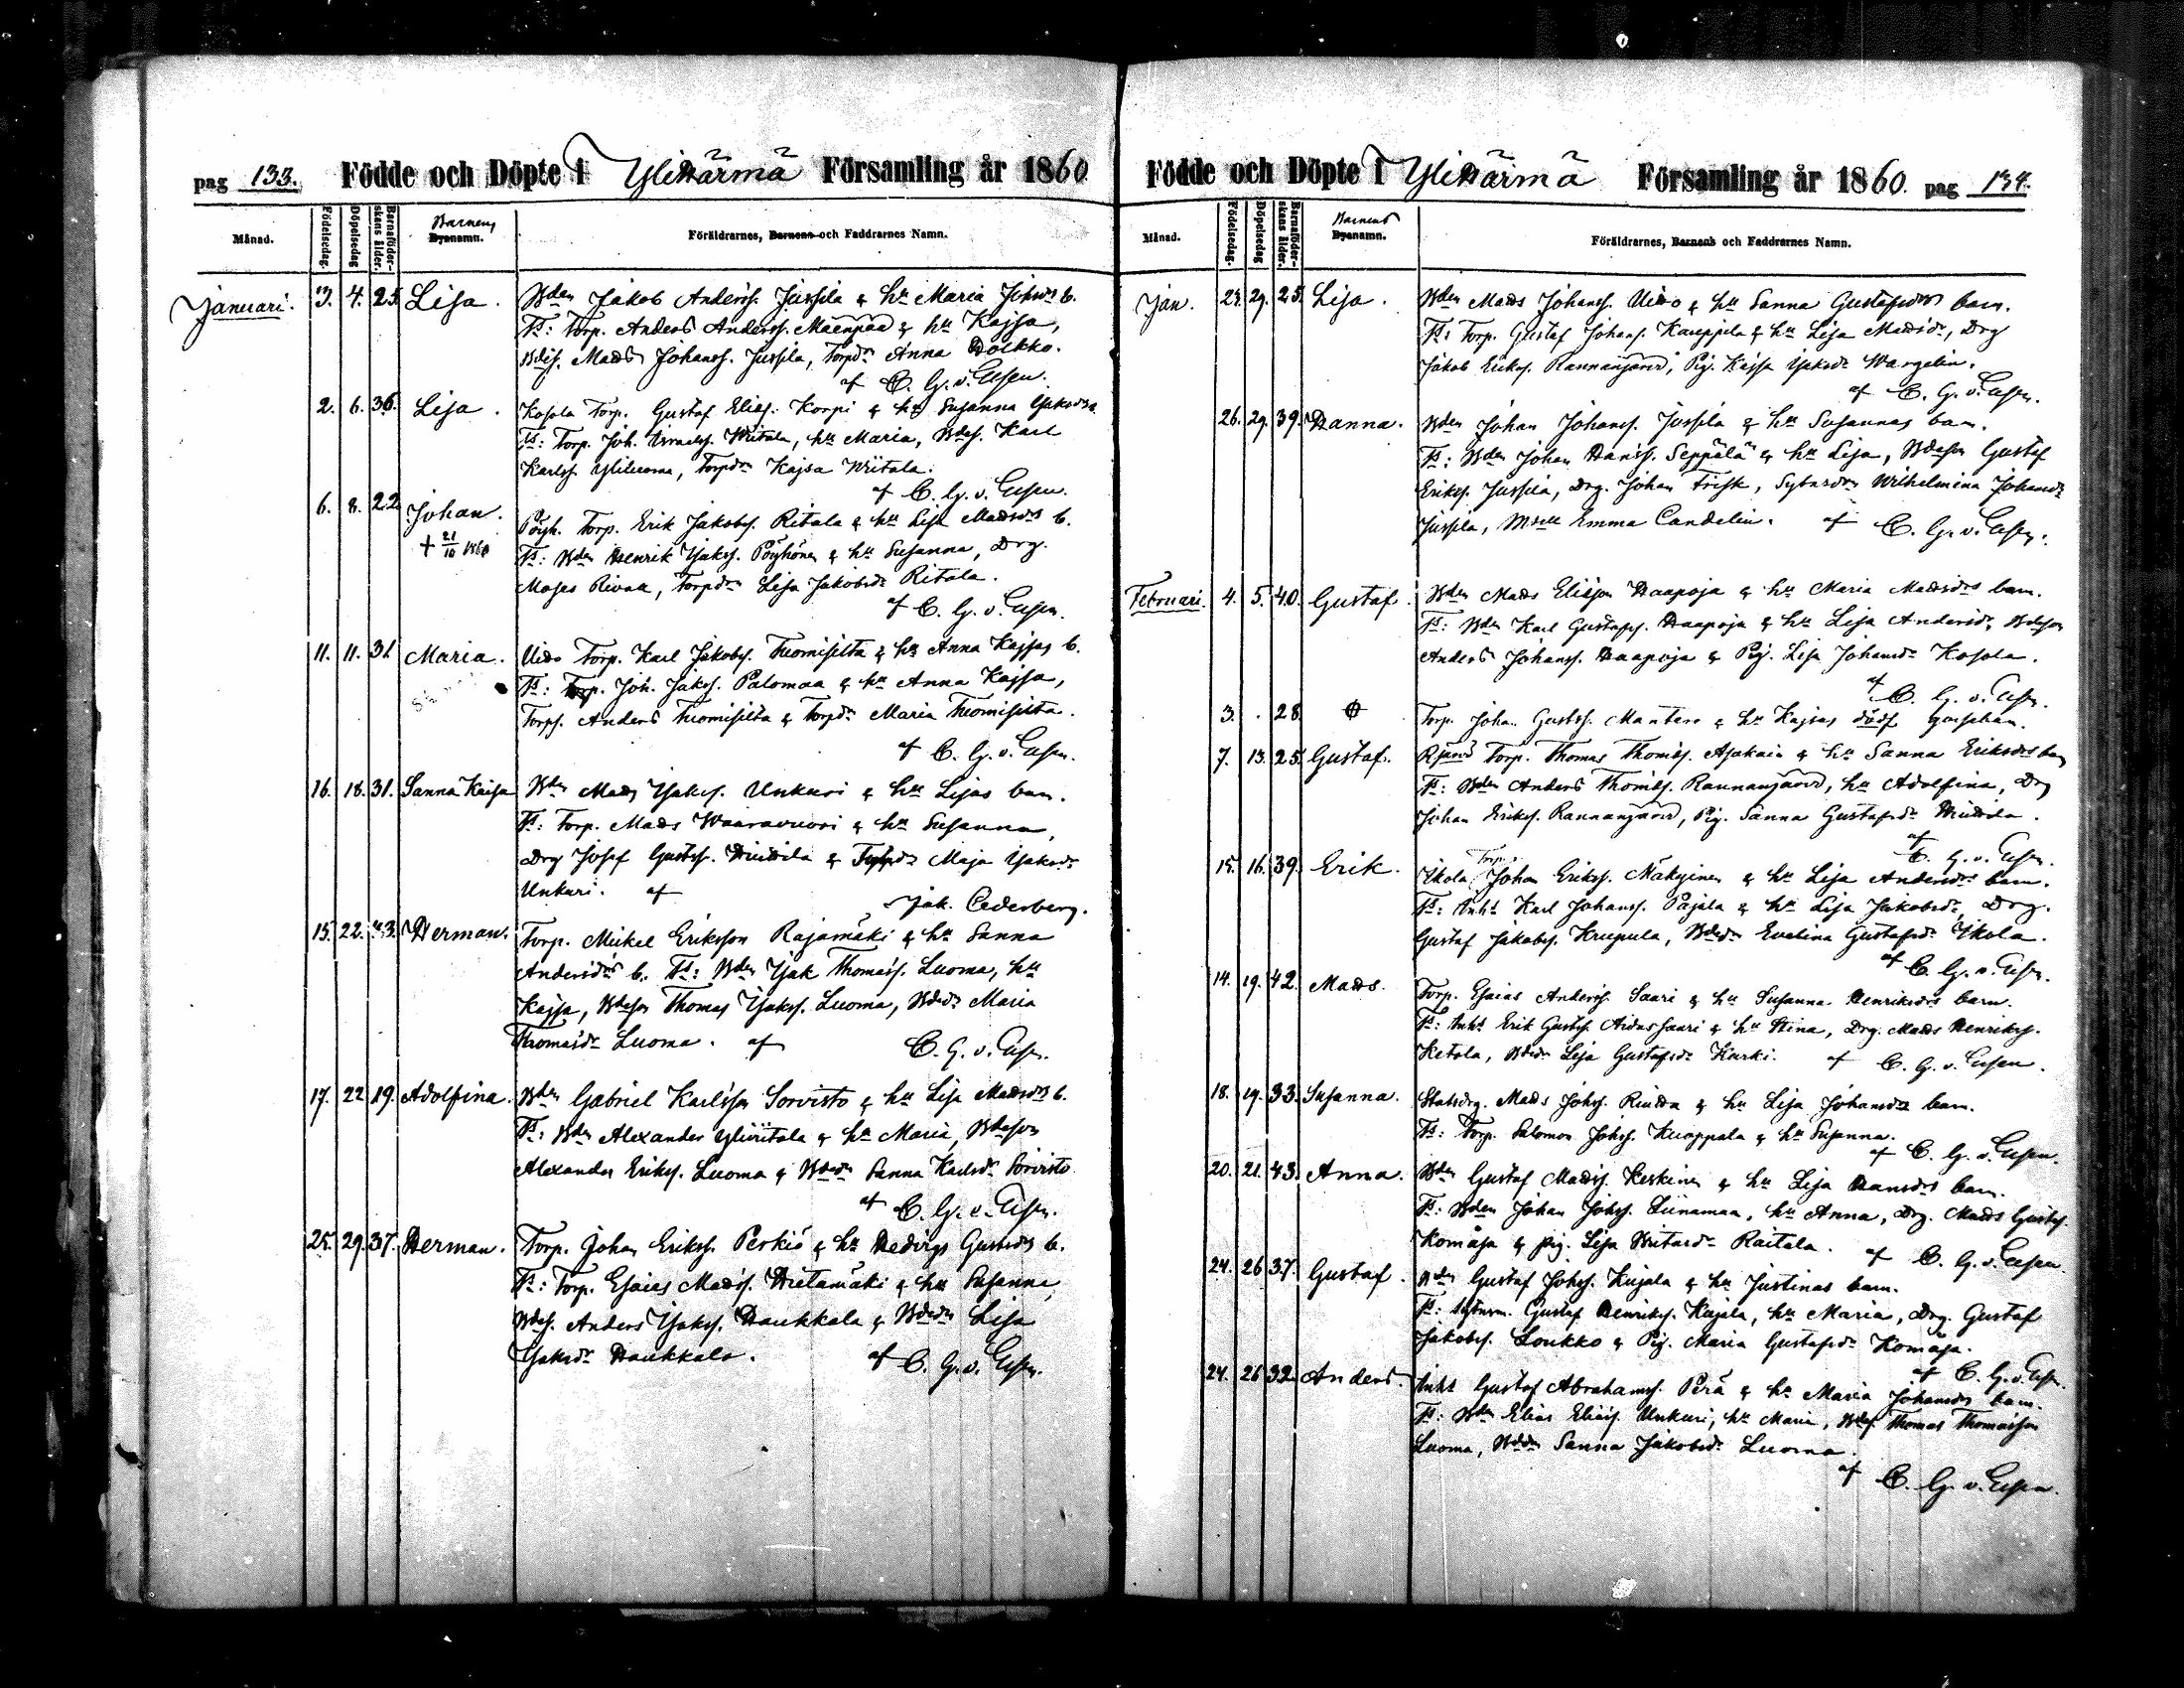 pag 133. Födde och Döpte i Ylihärmä Församling år 1860
Månad. Födelsedag. Döpelsedag Barnaföderskans ålder. Barnens Byanamn. Föräldrarnes, Barnens och Faddrarnes Namn.
Januari. 3. 4. 25. Lisa. Bden Jakob Anderss. Jussila & hu Maria Johsdrs b.
Fs: Torp. Anders Anderss. Mäenpää & hu Kajsa,
Bdes. Mads Johanss. Jussila, Torpdr Anna Holkko.
af C. G. v. Essen.
2. 6. 36. Lisa. Kosola Torp. Gustaf Elias. Korpi & hu Susanna
Fs: Torp. Joh. Israelss. Wiitala, hu Maria, Bdes. Karl
Karlss. Yliluoma, Torpdr Kajsa Wiitala.
af C. G. v. Essen.
6. 8. 22. Johan. Pöyh. Torp. Erik Jakobs. Ritala & hu Lisa Madsdrs b.
+ 21/10 1860 Fs: Bden Henrik Jaks. Pöyhönen & hu Susanna, Drg.
Moses Rivaa, Torpdr Lisa Jakobsdr Ritala.
af C. G. v. Essen.
11. 11. 31. Maria. Torp. Karl Jakobs. Tuomisilta & hu Anna Kajsas b.
Fs: Torp. Joh. Jaks. Palomaa & hu Anna Kajsa,
Torps. Anders Tuomisilta & Torpdr Maria Tuomisilta.
af C. G. v. Essen.
16. 18. 31. Sanna Kaisa Bden Mads Jaks. Unkuri & hu Lisas barn.
Fs: Torp. Mads Waaravuori & hu Susanna,
Drg Josef Gustfs. & Maja Jaksdr
Unkuri. af Jak. Cederberg.
15. 22. 43. Herman. Torp. Mickel Eriksson Rajamäki & hu Sanna
Andersdrs b. Fs: Bden Jak Thomass. Luoma, hu
Kajsa, Bdeson Thomas Jaks. Luoma, Bdedr Maria
Thomasdr Luoma. af C. G. v. Essen.
17. 22. 19. Adolfina. Bden Gabriel Karlsson Sorvisto & hu Lisa Madsdrs b.
Fs: Bden Alexander Yliviitala & hu Maria, Bdeson
Alexander Eriks. Luoma & Bdedr Sanna Karlsdr Sorvisto
af C. G. v. Essen.
25. 29. 37. Herman. Torp. Johan Eriks. Perkiö & hu Hedvigs Gustsdrs b.
Fs: Torp. Esaias Madss. Hietamäki & hu Susanna,
Bdes. Anders Jaks. Haukkala & Bdedr Lisa
Jaksdr Haukkala. af C. G. v. Essen.
Födde och Döpte i Ylihärmä Församling år 1860. pag 134.
Månad. Födelsedag. Döpelsedag Barnaföderskans ålder. Barnens Byanamn. Föräldrarnes, Barnens och Faddrarnes Namn.
Jan. 29. 25. Lisa. Bden Mads Johanss. & hu Sanna Gustafsdrs barn.
Fs: Torp. Gustaf Johans. Kauppila & hu Lisa Madsdr, Drg
Jakob Eriks. Rannanjärvi, Pig. Kajsa Jaksdr Wargelin.
af C. G. v. Essen.
26. 29. 39. Hanna. Bden Johan Johanss. Jussila & hu Susannas barn.
Fs: Bden Johan Hanss. Seppälä & hu Lisa, Bdeson Gustaf
Eriks. Jussila, Drg. Johan Frisk, Wilhelmina Johansdr
Jussila, Mselle Emma Candelin. af C. G. v. Essen.
Februari. 4. 5. 40. Gustaf. Bden Mads Eliasson Haapoja & hu Maria Madsdrs barn.
Fs: Bden Karl Gustafss. Haapoja & hu Lisa Andersdr, Bdeson
Anders Johanss. Haapoja & Pig. Lisa Johansdr Kosola.
af C. G. v. Essen.
3. . 28. Torp. Johan Gustfs. Mantere & hu Kajsas dödf. gossebarn.
7. 13. 25. Gustaf. Rjärvi Torp. Thomas Thomass. Asakaia & hu Sanna Eriksdrs barn
Fs: Bden Anders Thomass. Rannanjärvi, hu Adolfina, Drg
Johan Eriks. Rannanjärvi, Pig. Sanna Gustafsdr
af C. G. v. Essen.
15. 16. 39. Erik. Ekola Torp. Johan Eriks. Mäkynen & hu Lisa Andersdrs barn.
Fs: Inhs Karl Johanss. Pajala & hu Lisa Jakobsdr, Drg.
Gustaf Jakobs. Krupula, Bdedr Evelina Gustafsdr Ekola.
af C. G. v. Essen.
14. 19. 42. Mads. Torp. Esaias Anderss. Saari & hu Susanna Henriksdrs barn.
Fs: Inhs Erik Gustfs. Saari & hu Stina, Drg. Mads Henriks.
Ketola, Bdedr Lisa Gustafsdr Kurki. af C. G. v. Essen.
18. 19. 33. Susanna. Statsdrg. Mads Johss. & hu Lisa Johansdrs barn.
Fs: Torp. Salomon Johss. Kuoppala & hu Susanna.
af C. G. v. Essen.
20. 21. 43. Anna. Bden Gustaf Madss. Keskinen & hu Lisa Hansdrs barn.
Fs: Bden Johan Johss. Liinamaa, hu Anna, Drg. Mads Gustfs.
Komåsa & pig. Lisa Raitala. af C. G. v. Essen.
24. 26 37. Gustaf. Bden Gustaf Johss. Kujala & hu Justinas barn.
Fs: Gustaf Henriks. Kujala, hu Maria, Drg. Gustaf
Jakobs. Loukko & Pig. Maria Gustafsdr Komåsa.
af C. G. v. Essen.
24. 26 32. Anders. Inhs Gustaf Abrahams. Perä & hu Maria Johansdrs barn.
Fs: Bden Elias Eliass. Unkuri, hu Maria, Bdes. Thomas Thomasson
Luoma, Bdedr Sanna Jakobsdr Luoma.
af C. G. v. Essen.